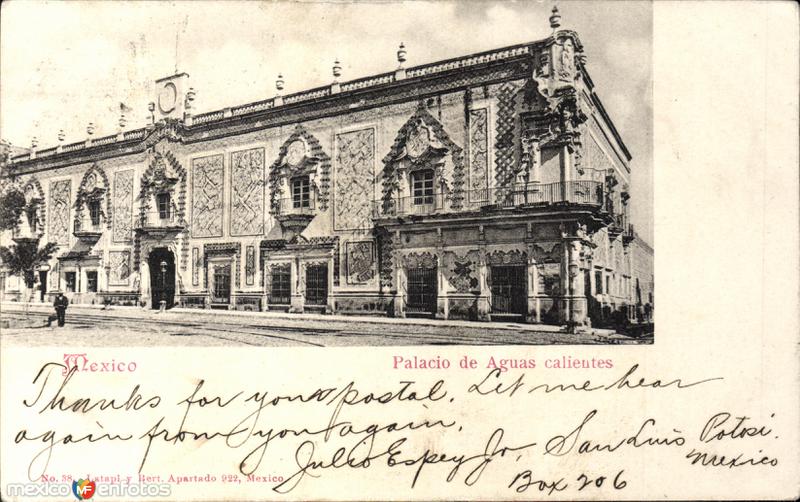 Mexico
Palacio de Aguas calientes
Thanks for your postal. Let me hear
again from you again.
Julio Espey Jr. San Luis Potosi.
Box 206 Mexico
No. 38. Latapi y Bert. Apartado 922, Mexico
mexicoenfotos